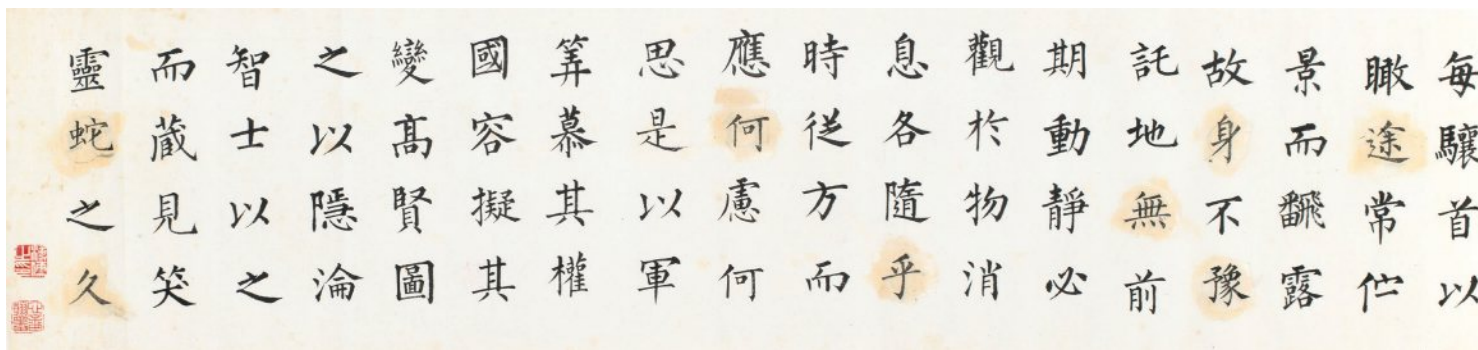 每驤首以
瞰途常伫
景而飜露
故身不豫
託地無前
期動靜必
觀於物消
息各隨乎
時従方而
應何慮何
思是以軍
筭慕其權
國容擬其
變髙賢圖
之以隱淪
智士以之
而蔵見笑
靈蛇之久